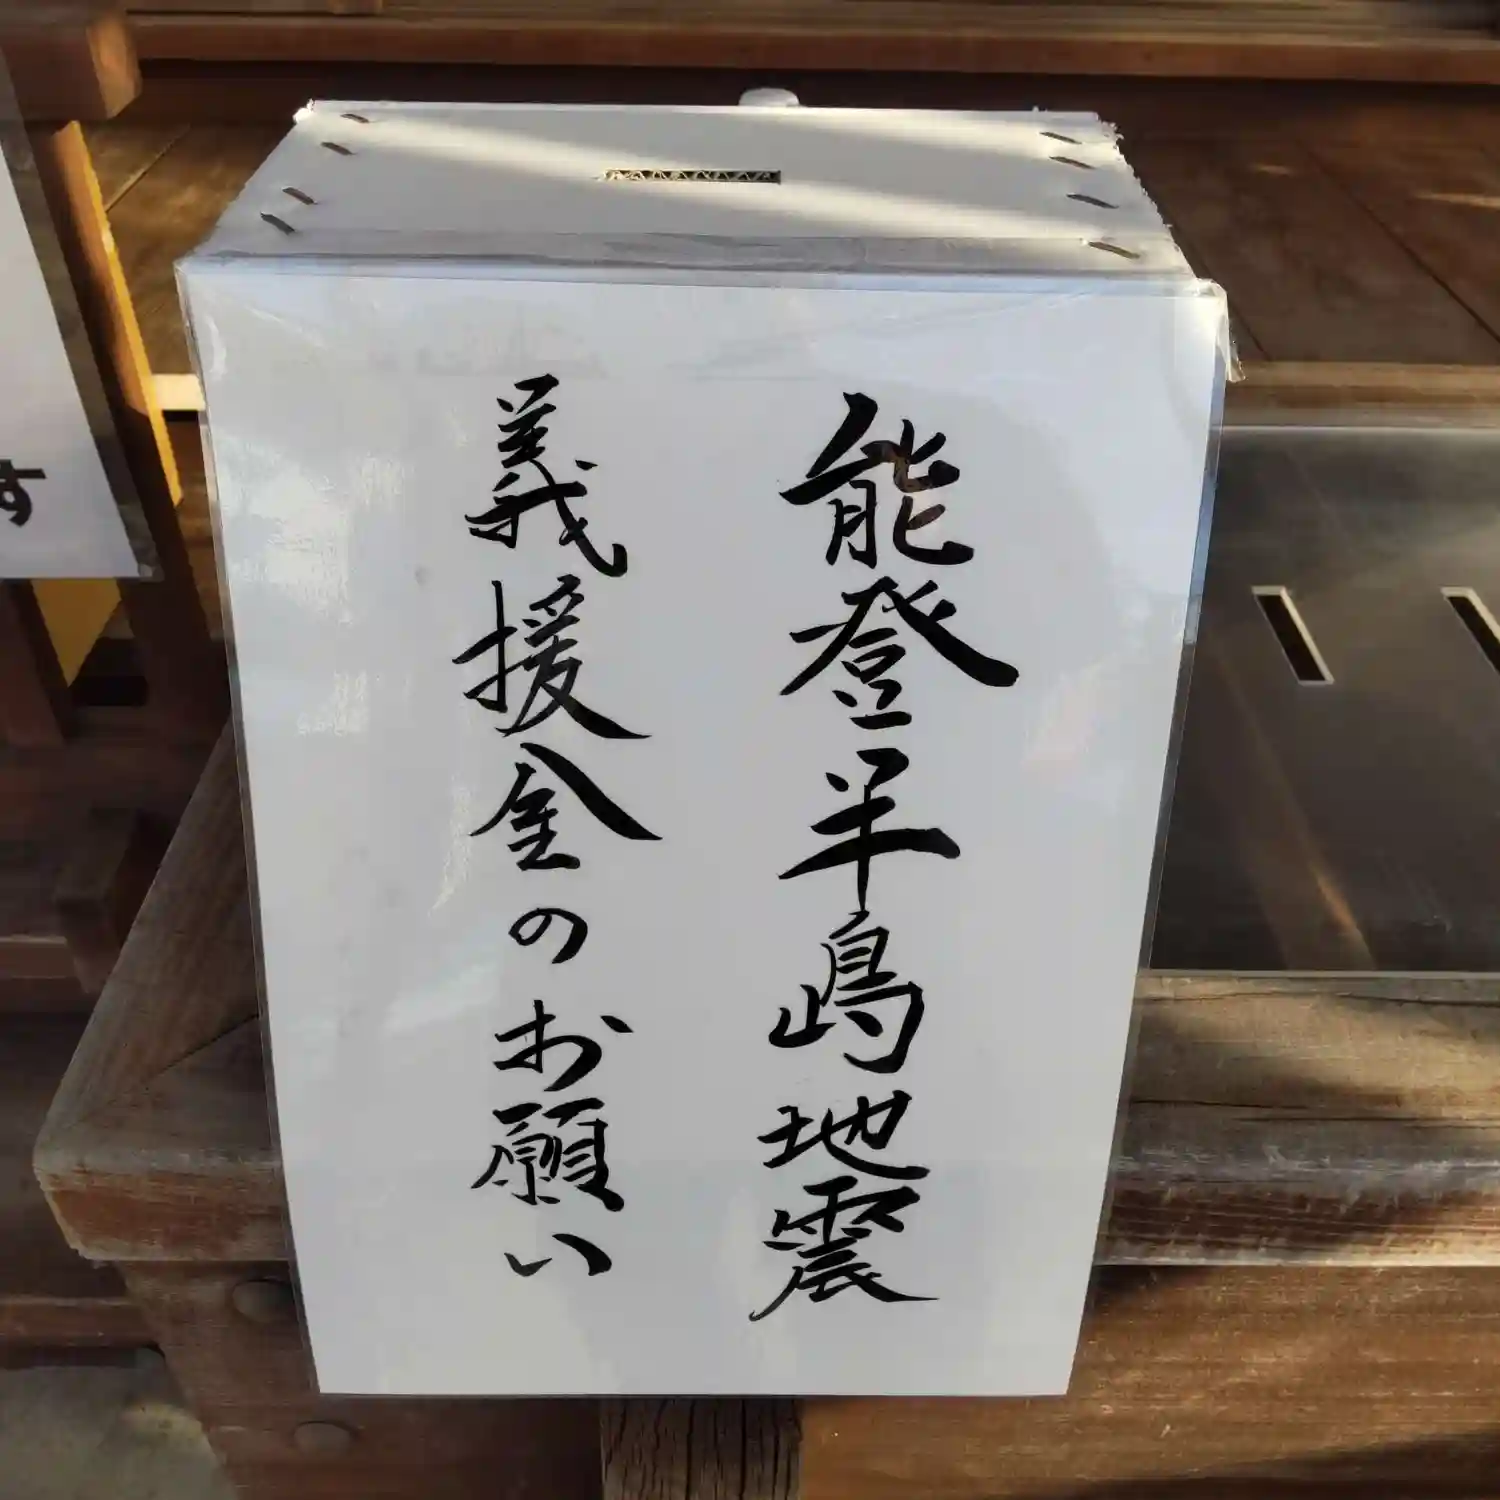 能登半島地震
義援金のお願い
す